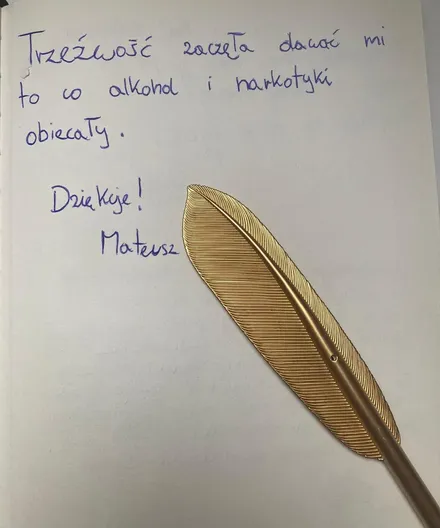 Trzeźwość zaczęła dawać mi
to co alkohol i narkotyki
obiecały.
Dziękuję!
Mateusz